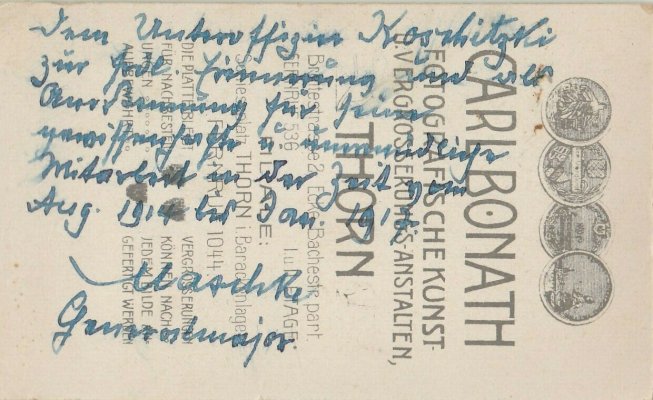 Dem Unteroffizier Koschitzki
zur frdl. Erinnerung und als
Anerkennung für seine
gewissenhafte u. unermüdliche
Mitarbeit in der Zeit vom
Aug. 1914 bis Jan. 1915
Generalmajor
CARL BONATH
FOTOGRAFISCHE KUNST-
U. VERGRÖSSERUNGS-ANSTALTEN,
THORN
Breitestrasse 2, Ecke Bachestr. part.
536
FILIALE:
THORN i. Baracken
FERNRUF 1044
DIE PLATTE BLEIBT
FÜR NACHBESTELL-
UNGEN
AUFBEWAHRT
VERGRÖSSERUNGEN
KÖNNEN NACH
JEDEM BILDE
GEFERTIGT WERDEN